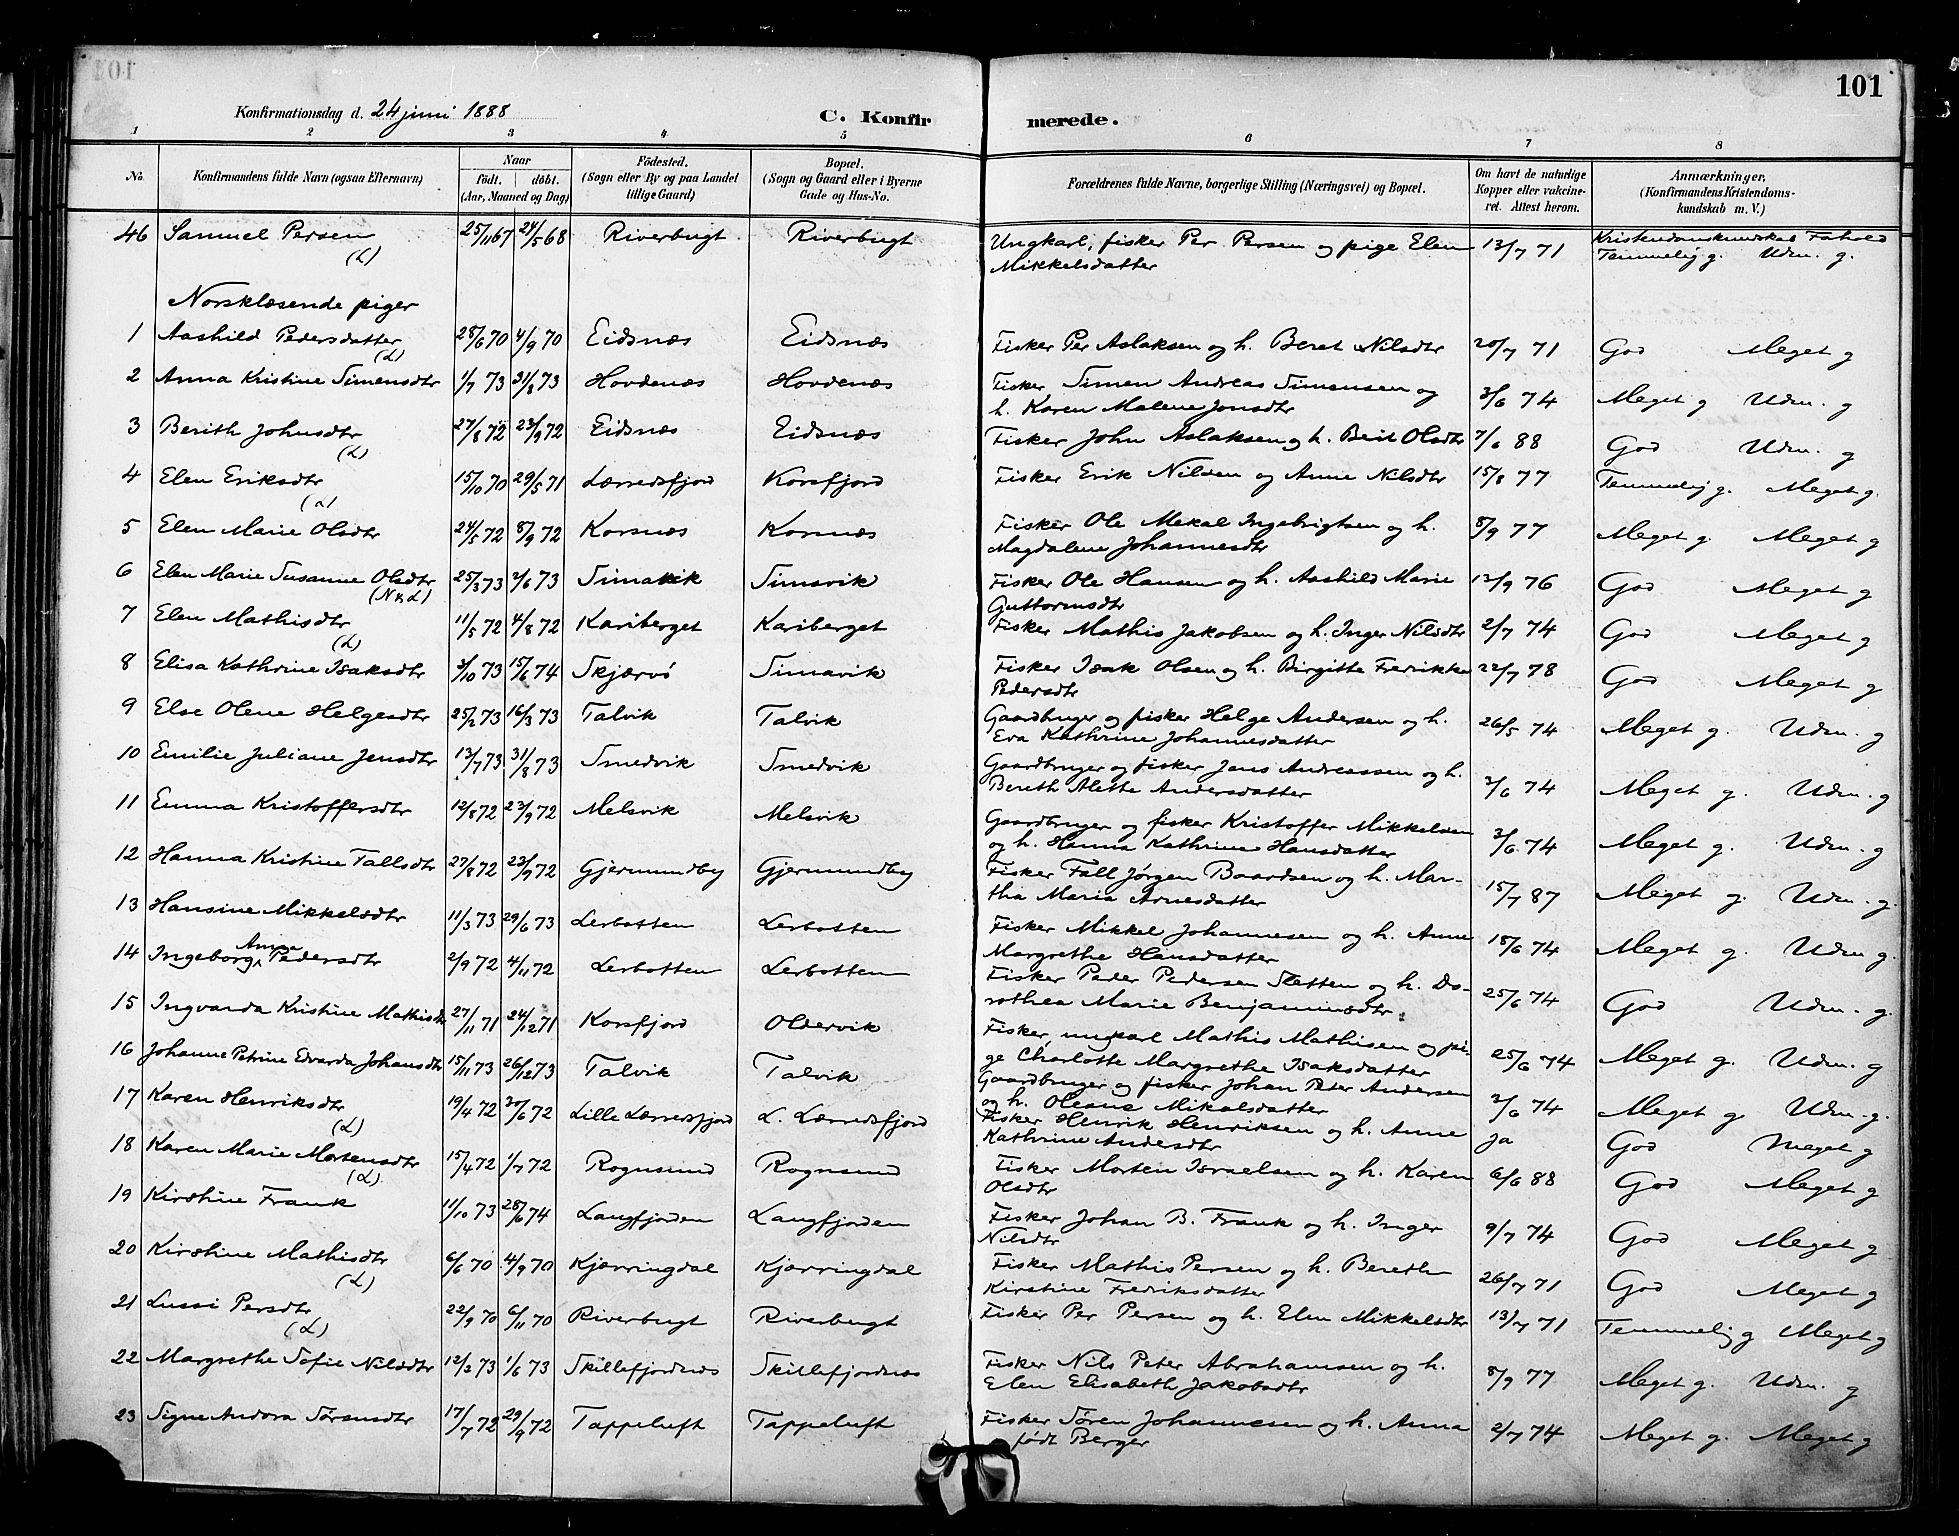 101
Konfirmationsdag d. 24 juni 1888
C. Konfirmerede.
1 2 3 4 5 6 7 8
No. | Konfirmandens fulde Navn (ogsaa Efternavn) | Naar født. døbt. (Aar, Maaned og Dag) | Fødested. (Sogn eller By og paa Landet tillige Gaard) | Bopæl. (Sogn og Gaard eller i Byerne Gade og Hus-No. | Forældrenes fulde Navne, borgerlige Stilling (Næringsvei) og Bopæl. | Om havt de naturlige Kopper eller vakcineret. Attest herom. | Anmærkninger, (Konfirmandens Kristendomskundskab m. V.)
46 Samuel Persen (L) 25/11 67 24/5 68 Riverbugt Riverbugt Ungkarl, fisker Per Persen og pige Elen Mikkelsdatter 13/7 71 Kristendomskundskab Forhold Temmelig g. Udm. g.
Norsklæsende piger
1 Aashild Pedersdatter (L) 28/6 70 4/9 70 Eidsnæs Eidsnæs Fisker Per Aslaksen og h. Beret Nilsdtr 20/7 71 God Meget g
2 Anna Kristine Simensdtr 1/7 73 31/8 73 Hovdenæs Hovdenæs Fisker Simen Andreas Simensen og h. Karen Malene Jonsdtr 3/6 74 Meget g Udm. g
3 Berith Johnsdtr (L) 27/8 72 23/9 72 Eidsnæs Eidsnæs Fisker John Aslaksen og h. Berit Olsdtr 7/6 88 God Udm. g
4 Elen Eriksdtr (L) 15/10 70 29/5 71 Lærredsfjord Korsfjord Fisker Erik Nilsen og Anne Nilsdtr 15/8 77 Temmelig g. Meget g.
5 Elen Marie Olsdtr 24/5 72 8/9 72 Korsnæs Korsnæs Fisker Ole Mekal Ingebrigtsen og h. Magdalene Johannesdtr 8/9 77 Meget g. Meget g
6 Elen Marie Susanne Olsdtr (N & L) 25/3 73 2/6 73 Simavik Simavik Fisker Ole Hansen og h. Aashild Marie Guttormsdtr 12/9 76 God Meget g
7 Elen Mathisdtr (L) 11/5 72 4/8 72 Kariberget Kariberget Fisker Mathis Jakobsen og h. Inger Nilsdtr 2/7 74 God Meget g
8 Elisa Kathrine Isaksdtr 3/10 73 15/6 74 Skjærvö Simavik Fisker Isak Olsen og h. Birgitte Fredrikke Pedersdtr 22/7 78 God Meget g
9 Else Olene Helgesdtr 25/2 73 16/3 73 Talvik Talvik Gaardbruger og fisker Helge Andersen og h. Eva Kathrine Johannesdatter 26/5 74 Meget g. Udm. g
10 Emilie Juliane Jensdtr 13/7 73 31/8 73 Smedvik Smedvik Gaardbruger og fisker Jens Andreassen og h. Bereth Alette Andersdatter 3/6 74 Meget g. Udm. g
11 Emma Kristoffersdtr 12/8 72 23/9 72 Melsvik Melsvik Gaardbruger og fisker Kristoffer Mikkelsen og h. Hanna Kathrine Hansdatter 3/6 74 Meget g. Udm. g
12 Hanna Kristine Fallsdtr 27/8 72 23/9 72 Gjermundby Gjermundby Fisker Fall Jørgen Baardsen og h. Martha Maria Arnesdatter 15/7 87 Meget g. Udm. g.
13 Hansine Mikkelsdtr 11/3 73 29/6 73 Lerbotten Lerbotten Fisker Mikkel Johannesen og h. Anne Margrethe Hansdatter 18/6 74 Meget g. Udm g.
14 Ingeborg Anna Pedersdtr 2/9 72 4/11 72 Lerbotten Lerbotten Fisker Peder Pedersen Sletten og h. Dorothea Marie Benjaminsdtr 25/6 74 God Udm. g.
15 Ingvarda Kristine Mathisdtr 27/11 71 24/12 71 Korsfjord Oldervik Fisker, ungkarl Mathis Mathisen og pige Charlotte Margrethe Isaksdatter 25/6 74 Meget g. Udm. g
16 Johanne Petrine Edvarda Johansdtr 15/11 73 26/12 73 Talvik Talvik Gaardbruger og fisker Johan Peter Andersen og h. Oleane Mikalsdatter 3/6 74 Meget g Udm. g.
17 Karen Henriksdtr (L) 19/4 72 30/6 72 Lille Lærredsfjord L. Lærredsfjord Fisker Henrik Henriksen og h. Anne Kathrine Andersdtr Ja God Meget g
18 Karen Marie Mortensdtr (L) 15/4 72 1/7 72 Rognsund Rognsund Fisker Morten Israelsen og h. Karen Olsdtr 6/6 88 God Meget g
19 Kirstine Frank 11/10 73 28/6 74 Langfjorden Langfjorden Fisker Johan B. Frank og h. Inger Nilsdtr 9/7 74 God Meget g
20 Kirstine Mathisdtr (L) 6/6 70 4/9 70 Kjærringdal Kjærringdal Fisker Mathis Persen og h. Bereth Kirstine Fredriksdatter 26/7 71 God Meget g
21 Lussi Persdtr (L) 22/9 70 6/11 70 Riverbugt Riverbugt Fisker Per Persen og h. Elen Mikkelsdtr 13/7 71 Temmelig g Meget g
22 Margrethe Sofie Nilsdtr 12/2 73 1/6 73 Skillefjordnæs Skillefjordnæs Fisker Nils Peter Abrahamsen og h. Elen Elisabeth Jakobsdtr 8/9 77 Meget g. Udm. g
23 Signe Andora Sörensdtr 17/7 72 29/9 72 Tappeluft Tappeluft Fisker Sören Johannesen og h. Anna født Berger 2/7 74 Meget g. Meget g